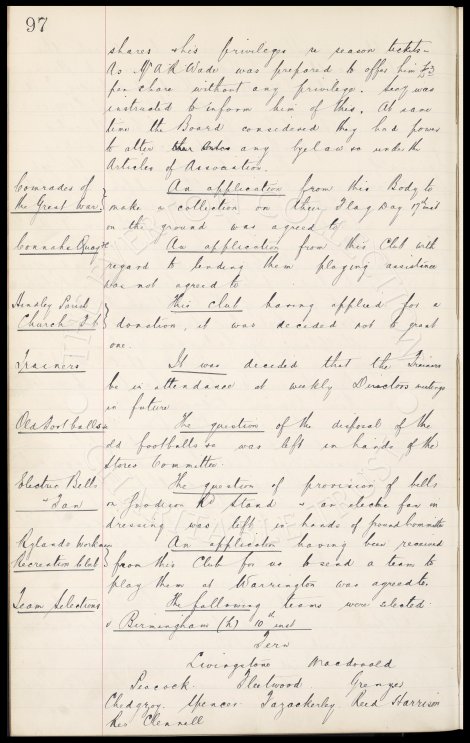 97
shares & his privileges re season tickets -
As Mr A R Wade was prepared to offer him £3
per share without any privilege. Secy was
instructed to inform him of this. At same
time the Board considered they had power
to alter any byelaw so under the
Articles of Association.
Comrades of the Great War.
An application from this Body to
make a collection on their Flag Day 17th inst
on the ground was agreed to
Connahs Quay
An application from this Club with
regard to lending them playing assistance
was not agreed to
Hindley Parish Church F.C.
This club having applied for a
donation, it was decided not to grant
one.
Trainers
It was decided that the Trainers
be in attendance at weekly Directors meetings
in future
Old Footballs
The question of the disposal of the
old footballs was left in hands of the
Stores Committee.
Electric Bells & Fan
The question of provision of bells
in Goodison Rd Stand & an electric fan in
dressing was left in hands of ground Committee
Rylands Workmen Recreation Club
An application having been received
from this Club for us to send a team to
play them at Warrington was agreed to.
Team Selections
The following teams were selected.
v Birmingham (h) 10th inst
Fern
Livingstone Macdonald
Peacock Fleetwood Grenyer
Chedgzoy Spencer Fazackerley Reid Harrison
Res Clennell